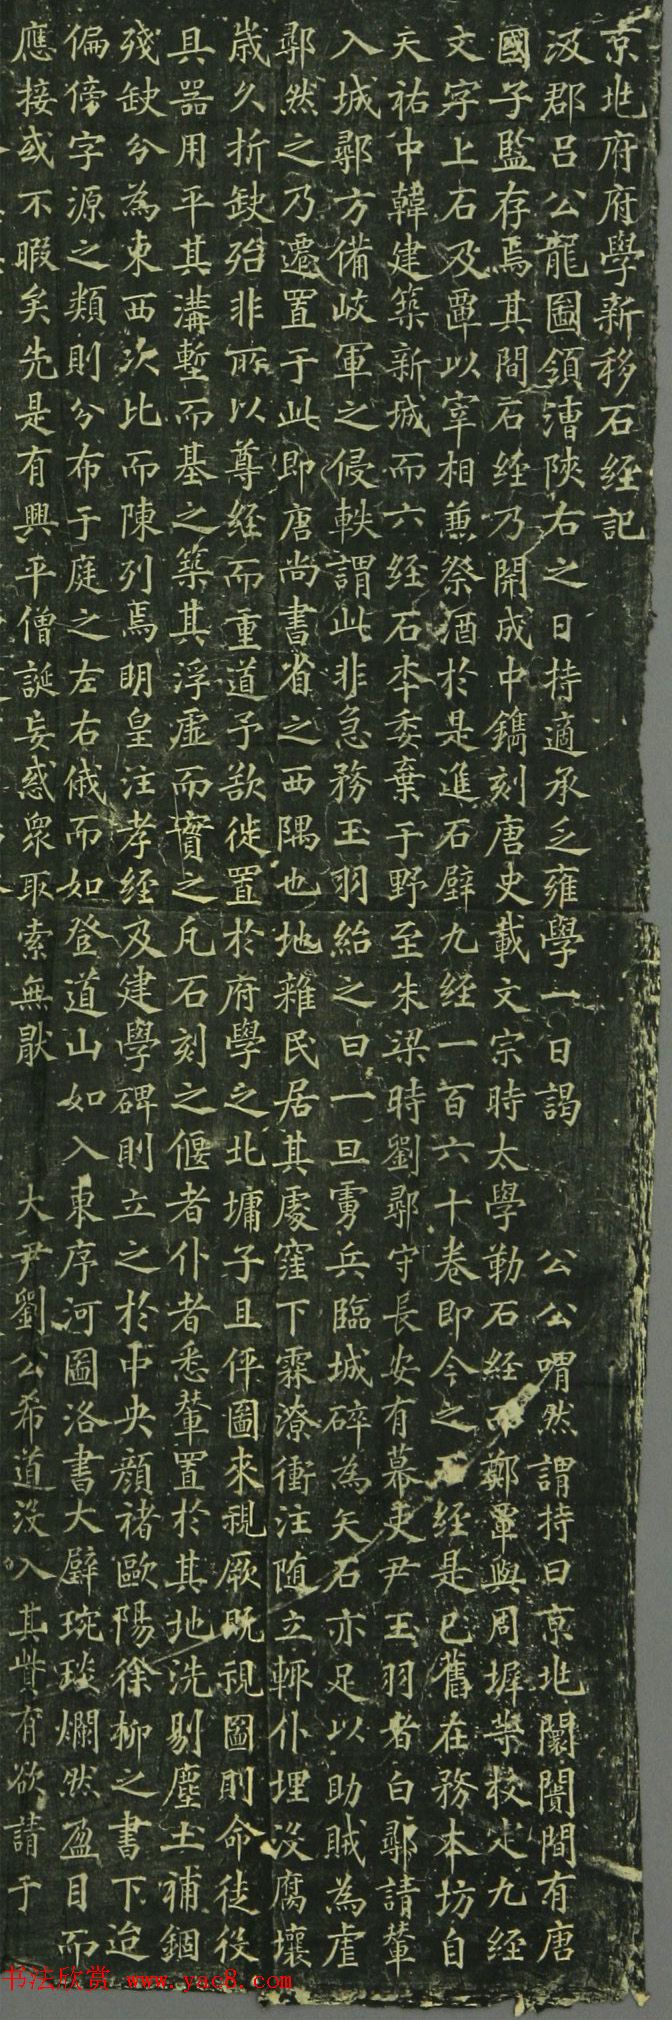 京地府府學新移石經記
汲郡呂公龍圖領漕陝右之日持適承乏雍學一日謁公公喟然謂持曰京地闤闠間有唐
國子監存焉其間石經乃開成中鐫刻唐史載文宗時太學勒石經而鄭覃與周墀等校定九經
文字上石及覃以宰相兼祭酒於是進石壁九經一百六十卷即今之石經是已舊在務本坊自
天祐中韓建築新城而六經石本委棄于野至朱梁時劉鄩守長安有幕吏尹玉羽者白鄩請輦
入城鄩方備岐軍之侵軼謂此非急務玉羽紿之曰一旦虜兵臨城碎為矢石亦足以助賊為虐
鄩然之乃遷置于此即唐尚書省之西隅也地雜民居其處窪下霖潦衝注随立輒仆埋沒腐壤
歲久折缺殆非所以尊經而重道予欲徙置於府學之北墉子且伻圖來視厥既視圖則命徒役
具器用平其溝塹而基之築其浮虛而實之凡石刻之偃者仆者悉輦置於其地洗剔塵土補錮
殘缺分為東西次比而陳列焉明皇注孝經及建學碑則立之於中央顏褚歐陽徐柳之書下迨
偏傍字源之類則分布于庭之左右俄而如登道山如入東序河圖洛書大璧琬琰爛然盈目而
應接或不暇矣先是有興平僧誕妄惑眾取索無猒大尹劉公希道沒入其貲有欲請于
书法欣赏 www.yac8.com